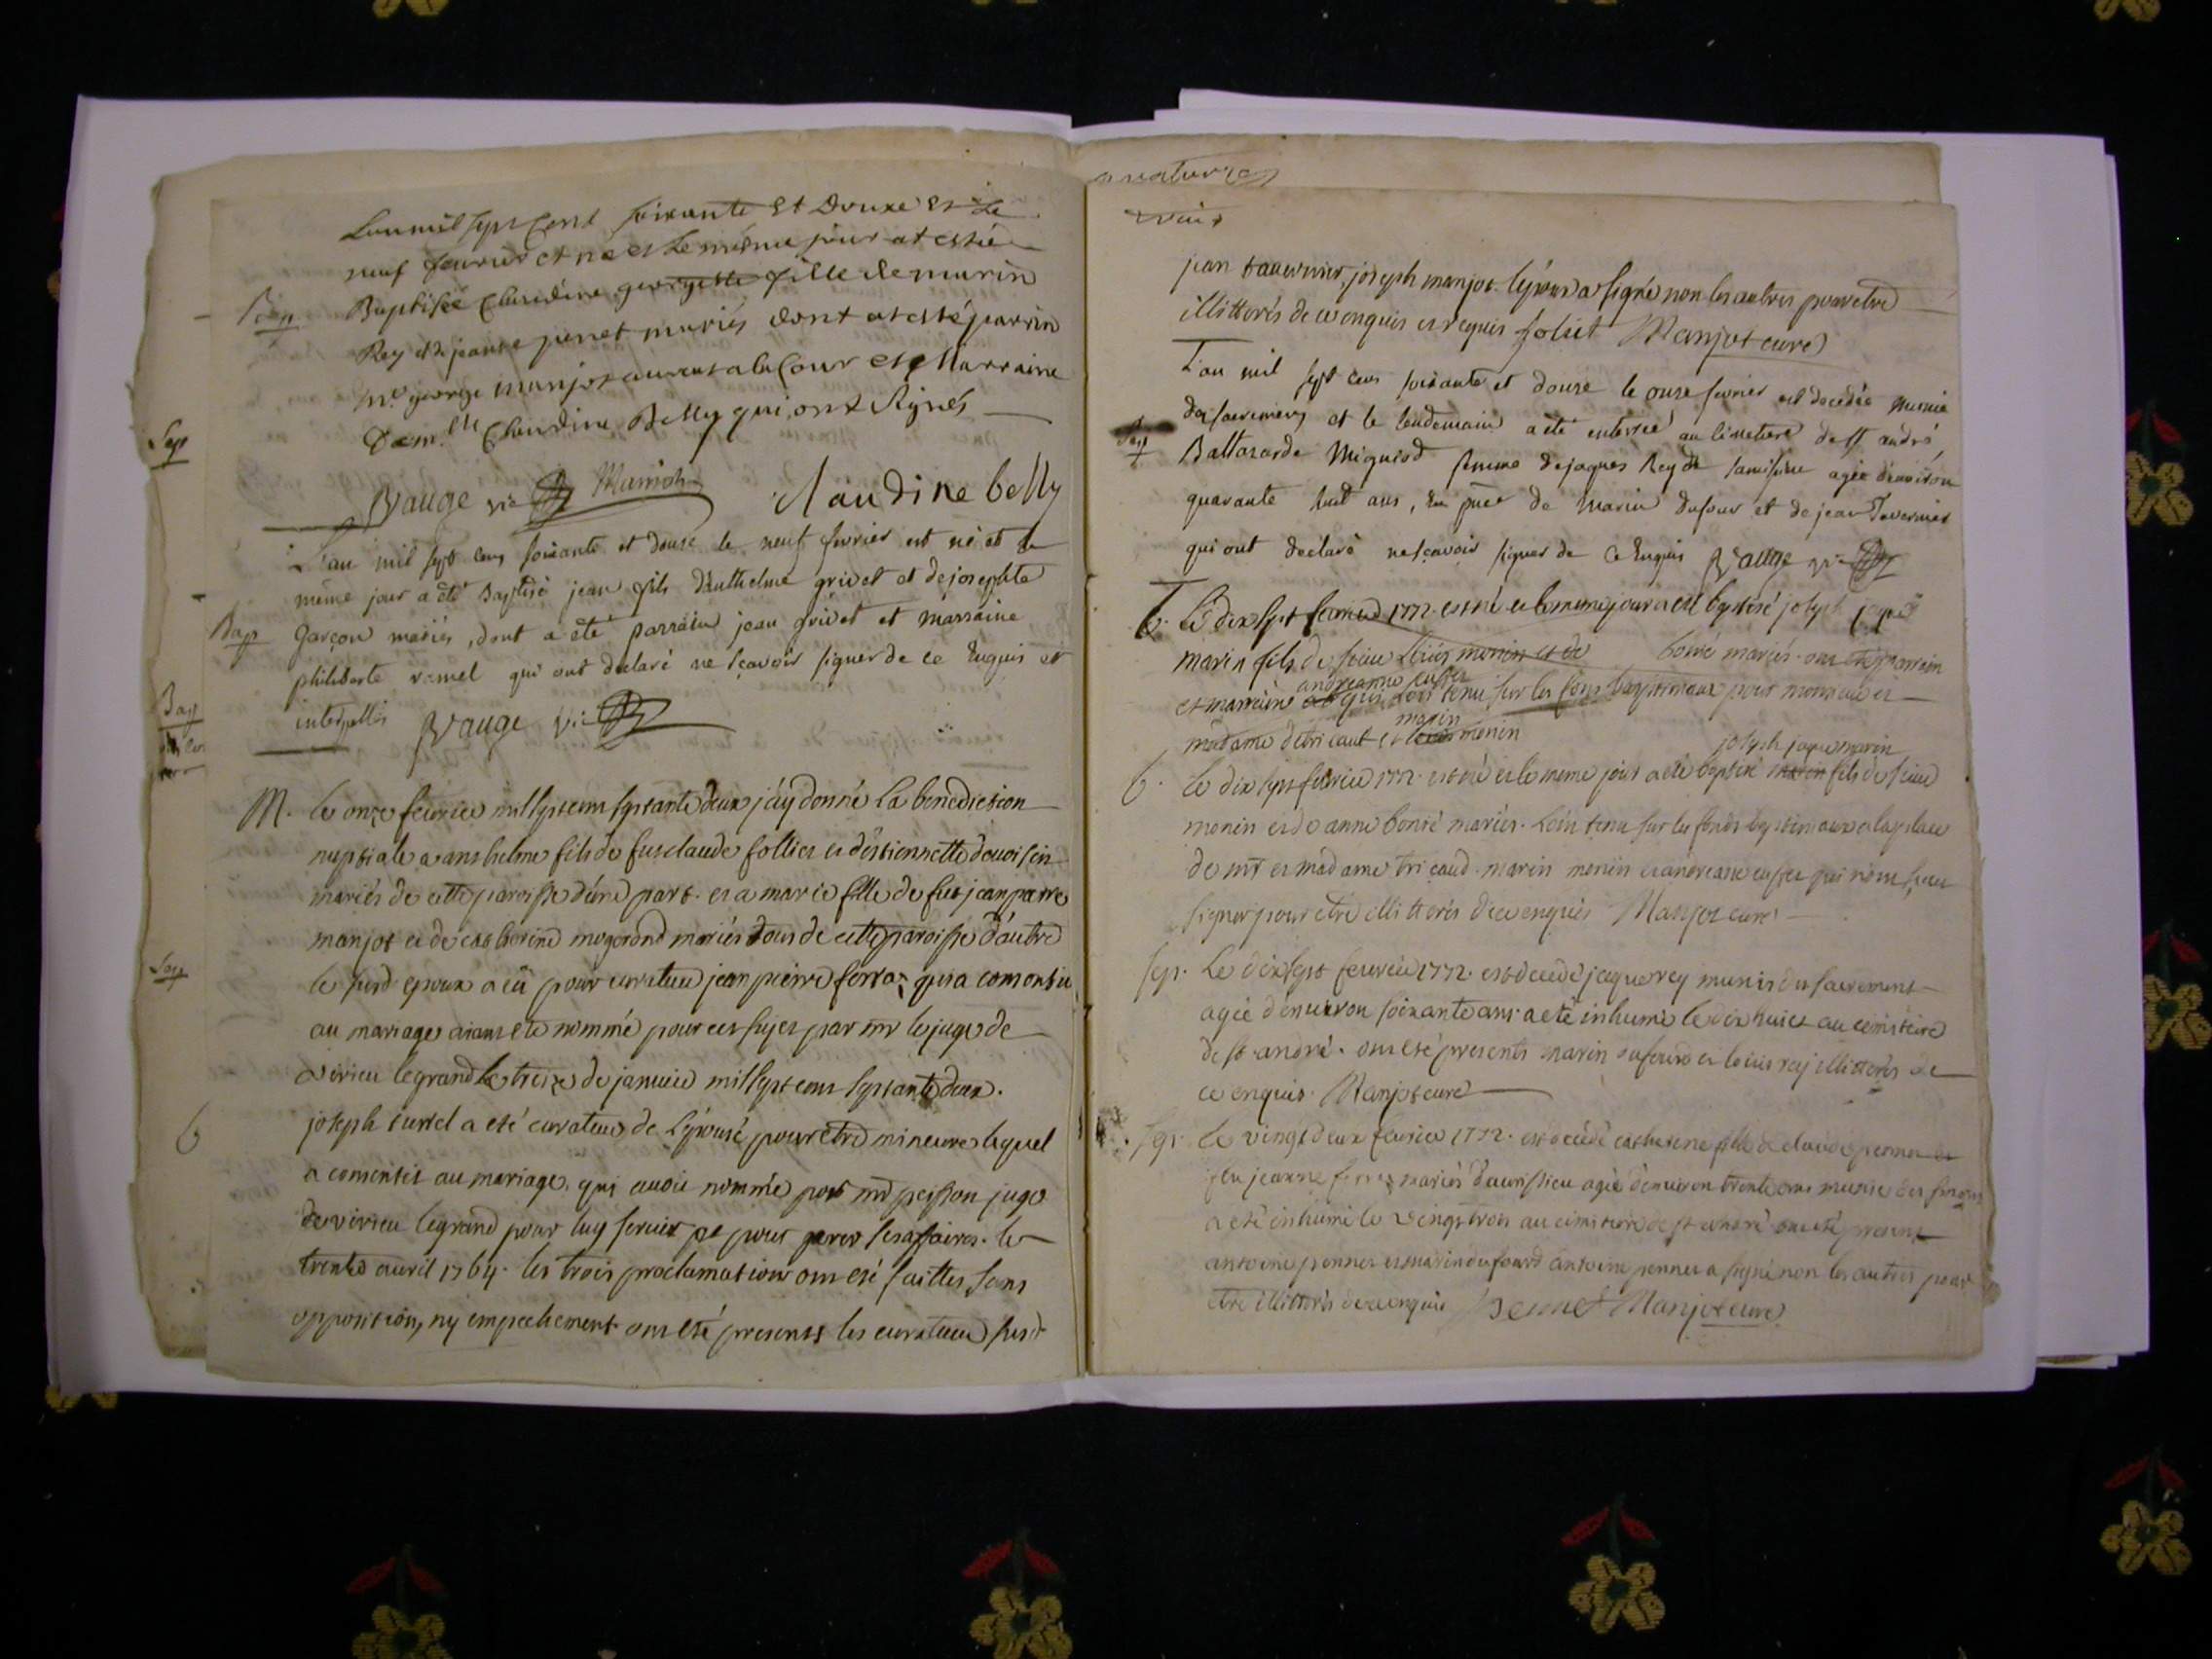 L'an mil sept cent soixante et douze et le
neuf fevrier et né et le même jour at estée
Bap Baptisée Claudine georgette fille de marin
Rey et de jeanne penet mariés dont at esté parrin
mr george manjot avocat a la Cour et Marraine
Dem.lle Claudine Belly qui ont signés
Vauge vic Manjot Claudine belly
L'an mil sept cens soixante et douse le neuf fevrier est né et le
même jour a été Baptisé jean fils d'anthelme grivet et de josephte
Bap garçon mariés, dont a été parrain jean grivet et marraine
philiberte ramel qui ont declaré ne sçavoir signer de ce Enquis et
interpellés Vauge vic
M. le onze fevrier mil sept cens septante deux j'ay donné la benediction
nuptiale a anthelme fils de fus claude follier et d'estiennette devoisin
mariés de cette paroisse d'une part. et a marie fille de fus jean pierre
manjot et de catherine mogerond mariés tous de cette paroisse d'autre
le susd epoux a eü pour curateur jean pierre ferraz qui a consentu
au mariage aiant été nommé pour ces sujet par mr le juge de
virieu le grand le treize de janvier mil sept cens septante deux.
joseph turrel a eté curateur de l'épouse pour etre mineure lequel
a consentit au mariage. qui avoit nommé par mr peysson juge
de virieu le grand pour luy servir et pour gerer ses affaires. le
trente avril 1764. les trois proclamations ont eté faittes sans
opposition, ny empechement ont eté presents les curateurs susd
Sep
Bap
Sep
B
jean tavernier, joseph manjot l'époux a signé non les autres pour etre
illitterés de ce enquis et requis foliet Manjot curé
L'an mil sept cens soixante et douse le onse fevrier est decedée munie
des sacremens et le lendemain a été enterrée au cimetiere de st andré,
Sep Baltazarde Migniod femme de jaques Rey de samissieu agée d'environ
quarante huit ans, En pnce de Marin dufour et de jean Tavernier
qui ont declaré ne sçavoir signer de ce Enquis Vauge vic
b. Le dix sept fevrier 1772. est né et le meme jour a eté baptisé joseph jaque
marin fils de sieur louis monin et de bonié mariés. ont eté parrain
andreanne cuffer
et marraine qui l'ont tenu sur les fons baptismaux pour monsieur et
marin
madame de tricaut et monin
joseph jaque marin
b. le dix sept fevrier 1772. est né et le meme jour a eté baptisé marin fils de sieur
monin et de anne bonié mariés. l'ont tenu sur les fonds baptismaux a la place
de mr et madame tricaud. marin monin et andreane cuffer qui n'ont sceu
signer pour etre illitterés de ce enquis Manjot curé
sep. Le dix sept fevrier 1772. est decedé jaque rey munis du sacrement
agée d'environ soixante ans a eté inhumé le dix huict au cimitiere
de st andré. ont eté presents marin dufour et louis rey illitterés de
ce enquis. Manjot curé
sep. le vingt deux fevrier 1772. est decedé catherine fille de claude pennet et
feu jeanne ferraz mariés d'aurissieu agée d'environ trente ans munie des
a eté inhumé le vingt trois au cimitiere de st andré ont eté presens
antoine pennet et marin dufourd antoine pennet a signé non les autres pour
etre illitterés de ce enquis Pennet Manjot curé